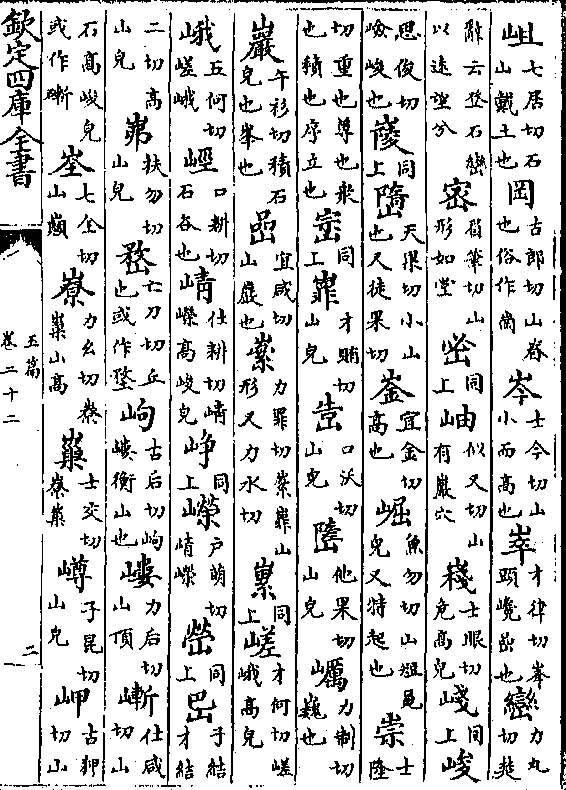 岨七居切石山戴土也岡古郎切山脊也俗作崗岑士今切山小而高也崒才律切峯頭巉嵒也巒力丸切楚
辭云登石巒以遠望兮密眉筆切山形如堂峚同上岫似又切山有巖穴㟞士眼切危高皃㟞同上峻
思俊切嶮峻也㥄同上𡼭天果切小山也又徒果切崟宜金切高也崛魚勿切山短皃又特起也崇士隆
切重也尊也衆也積也序立也崈同上㠑才賄切山皃㟧口沃切山皃𡼭他果切山皃巁力制切巍也
巖午衫切積石皃也峯也嵒宜咸切山巖也㟪力罪切㟪㠑山形又力水切㠥同上嵯才何切嵯峨高皃
峨五何切嵯峨𡷨口耕切石名也崝仕耕切崝嶸高峻皃崢同上嶸戶萌切崝嶸嵤同上㞯子結才結
二切高山皃岪扶勿切山皃嵍亡刀切丘也或作堥岣古后切岣嶁衡山也嶁力后切山頂嶃仕咸切山
石高峻皃或作磛峑七全切山巓嶚力幺切嶚巢山高巢士交切嶚巢嶟子昆切山皃岬古狎切山
欽定四庫全書
玉篇
卷二十二
二